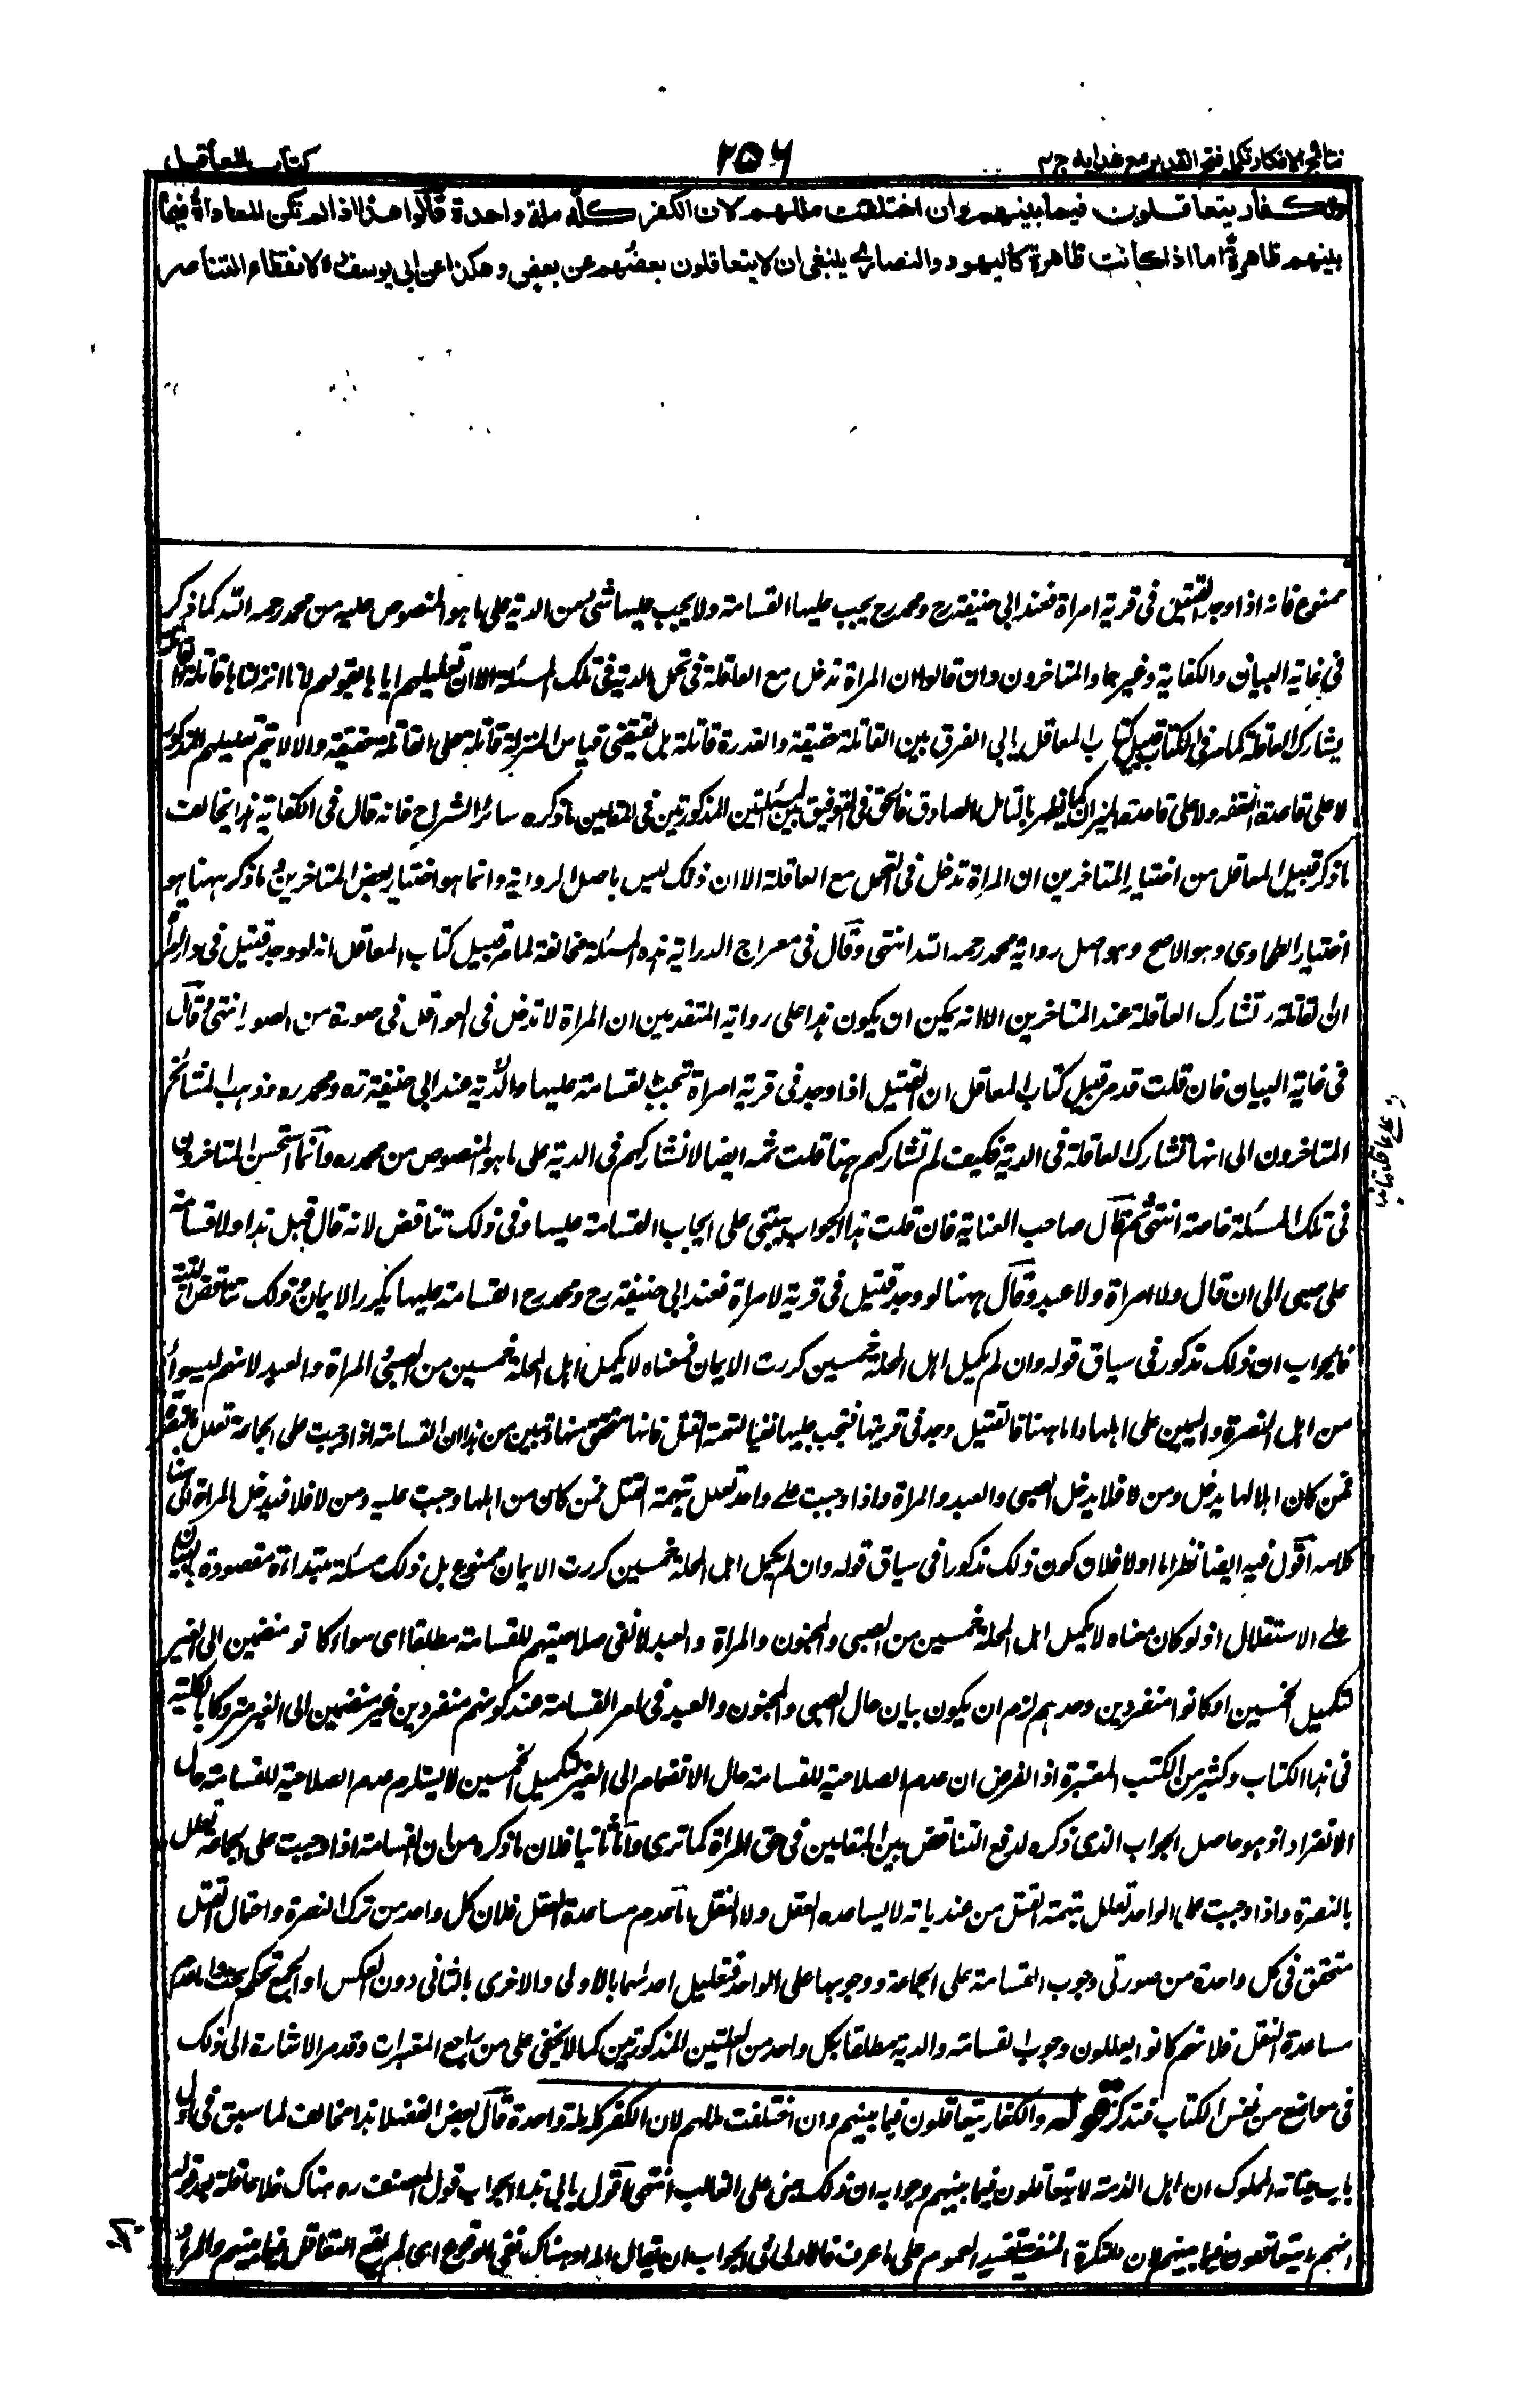 نتائج الافكار تكملة فتح القدير مع هدايه ج ٤
٢٥٦
كتاب المعاقل
والكفار يتعاقلون فيما بينهم وان اختلفت مللهم لان الكفر كله ملة واحدة قالوا هذا اذا لم تكن المعاداة فيما
بينهم ظاهرة اما اذا كانت ظاهرة كاليهود والنصارى ينبغى ان لا يتعاقلون بعضهم عن بعض وهكذا عن ابى يوسف لانقطاع التناصر
ممنوع فانه اذا وجد القتيل فى قرية امراة فعند ابى حنيفة رح ومحمد رح يجب عليها القسامة ولا يجب عليها شئ من الدية على ما هو المنصوص عليه من محمد رحمه الله كما ذكر
فى غاية البيان والكفاية وغيرهما والمتاخرون وان قالوا ان المراة تدخل مع العاقلة فى تحمل الدية فى تلك المسئلة الا ان تعليلهم اياها بقولهم لانا انزلناها قاتلة والقاتل
يشارك العاقلة كما مر فى الكتاب قبيل كتاب المعاقل يابى الفرق بين القاتلة حقيقة والقدرة قاتلة بل تقتضى قياس المنزلة قاتلة على القاتلة حقيقة والا لا يتم تعليلهم المذكور
لا على قاعدة الفقه ولا على قاعدة الميزان كما يظهر بالتامل الصادق فالحق فى التوفيق بين المسئلتين المذكورتين فى المقامين ما ذكره سائر الشراح فانه قال فى الكفاية هذا يخالف
ما ذكر قبيل المعاقل من اختيار المتاخرين ان المراة تدخل فى التحمل مع العاقلة الا ان ذلك ليس باصل الرواية وانما هو اختيار بعض المتاخرين وما ذكر ههنا هو
اختيار الطحاوى وهو الاصح وهو اصل رواية محمد رحمه الله انتهى وقال فى معراج الدراية هذه المسئلة مخالفة لما مر قبيل كتاب المعاقل انه لو وجد قتيل فى دار المراة
ان القاتلة تشارك العاقلة عند المتاخرين الا انه يمكن ان يكون هذا على رواية المتقدمين ان المراة لا تدخل فى العواقل فى صورة من الصور انتهى وقال
فى غاية البيان فان قلت قد مر قبيل كتاب المعاقل ان القتيل اذا وجد فى قرية امراة تجب القسامة عليها والدية عند ابى حنيفة ره ومحمد ره وذهب المشائخ
المتاخرون الى انها تشارك العاقلة فى الدية فكيف لم تشاركهم هنا قلت ثمه ايضا لا تشاركهم فى الدية على ما هو المنصوص من محمد ره وانما استحسن المتاخرون
فى تلك المسئلة خاصة انتهى ثم قال صاحب العناية فان قلت هذا الجواب يبتنى على ايجاب القسامة عليها وفى ذلك تناقض لانه قال قبيل هذا ولا قسامة
على صبى الى ان قال ولا امراة ولا عبد وقال ههنا لو وجد قتيل فى قرية لامراة فعند ابى حنيفة رح ومحمد رح القسامة عليها يكرر الايمان وذلك تناقض البتة
فالجواب ان ذلك مذكور فى سياق قوله وان لم يكمل اهل المحلة خمسين كررت الايمان فمعناه لا يكمل اهل المحلة خمسين من الصبى والمراة والعبد لانهم ليسوا
من اهل النصرة واليمين على اهلها واما ههنا فالقتيل وجد فى قريتها فتجب عليها نفيا لتهمة القتل فانها متحقق منها وتبين من هذا ان القسامة اذا وجبت على الجماعة تعلل بالنصرة
فمن كان اهلا لها يدخل ومن لا فلا يدخل الصبى والعبد والمراة واذا وجبت على واحد تعلل بتهمة القتل فمن كان من اهلها وجبت عليه ومن لا فلا فيدخل المراة الى هنا
كلامه اقول فيه ايضا نظر اما اولا فلان كون ذلك مذكورا فى سياق قوله وان لم يكمل اهل المحلة خمسين كررت الايمان ممنوع بل ذلك مسئلة مبتداءة مقصودة بالبيان
على الاستقلال اذ لو كان معناه لا يكمل اهل المحلة خمسين من الصبى والمجنون والمراة والعبد لا نفى صلاحيتهم للقسامة مطلقا اى سواء كانوا منضمين الى الغير
لتكميل الخمسين او كانوا منفردين وحدهم لزم ان يكون بيان حال الصبى والمجنون والعبد فى امر القسامة عند كونهم منفردين غير منضمين الى الغير متروكا بالكلية
فى هذا الكتاب وكثير من الكتب المعتبرة اذ الفرض ان عدم الصلاحية للقسامة حال الانضمام الى الغير لتكميل الخمسين لا يستلزم عدم الصلاحية للقسامة حال
الانفراد اذ هو حاصل الجواب الذى ذكره لدفع التناقض بين المقامين فى حق المراة كما ترى واما ثانيا فلان ما ذكره من ان القسامة اذا وجبت على الجماعة تعلل
بالنصرة واذا وجبت على الواحد تعلل بتهمة القتل من عندياته لا يساعده العقل ولا النقل اما عدم مساعدة العقل فلان كل واحد من ترك النصرة واحتمال القتل
متحقق فى كل واحدة من صورتى وجوب القسامة على الجماعة ووجوبها على الواحد فتعليل احدلهما بالاولى والاخرى بالثانى دون العكس او الجمع تحكم بحت واما عدم
مساعدة النقل فلانهم كانوا يعللون وجوب القسامة والدية مطلقا بكل واحد من العلتين المذكورتين كما لا يخفى على من يراجع المعتبرات وقد مر الاشارة الى ذلك
فى مواضع من نفس الكتاب فتذكر قوله والكفار يتعاقلون فيما بينهم وان اختلفت مللهم لان الكفر كله ملة واحدة قال بعض الفضلاء هذا مخالف لما سبق فى اول
باب جناية المملوك ان اهل الذمة لا يتعاقلون فيما بينهم وجوابه ان ذلك مبنى على الغالب انتهى اقول يابى هذا الجواب قول المصنف ره هناك فلا عاقلة بعد قوله
انهم لا يتعاقلون فيما بينهم لان النكرة المنفية تفيد العموم على ما عرف فالاولى فى الجواب ان يقال المراد هناك نفى الوقوع اى لم يقع التعاقل فيما بينهم والمراد